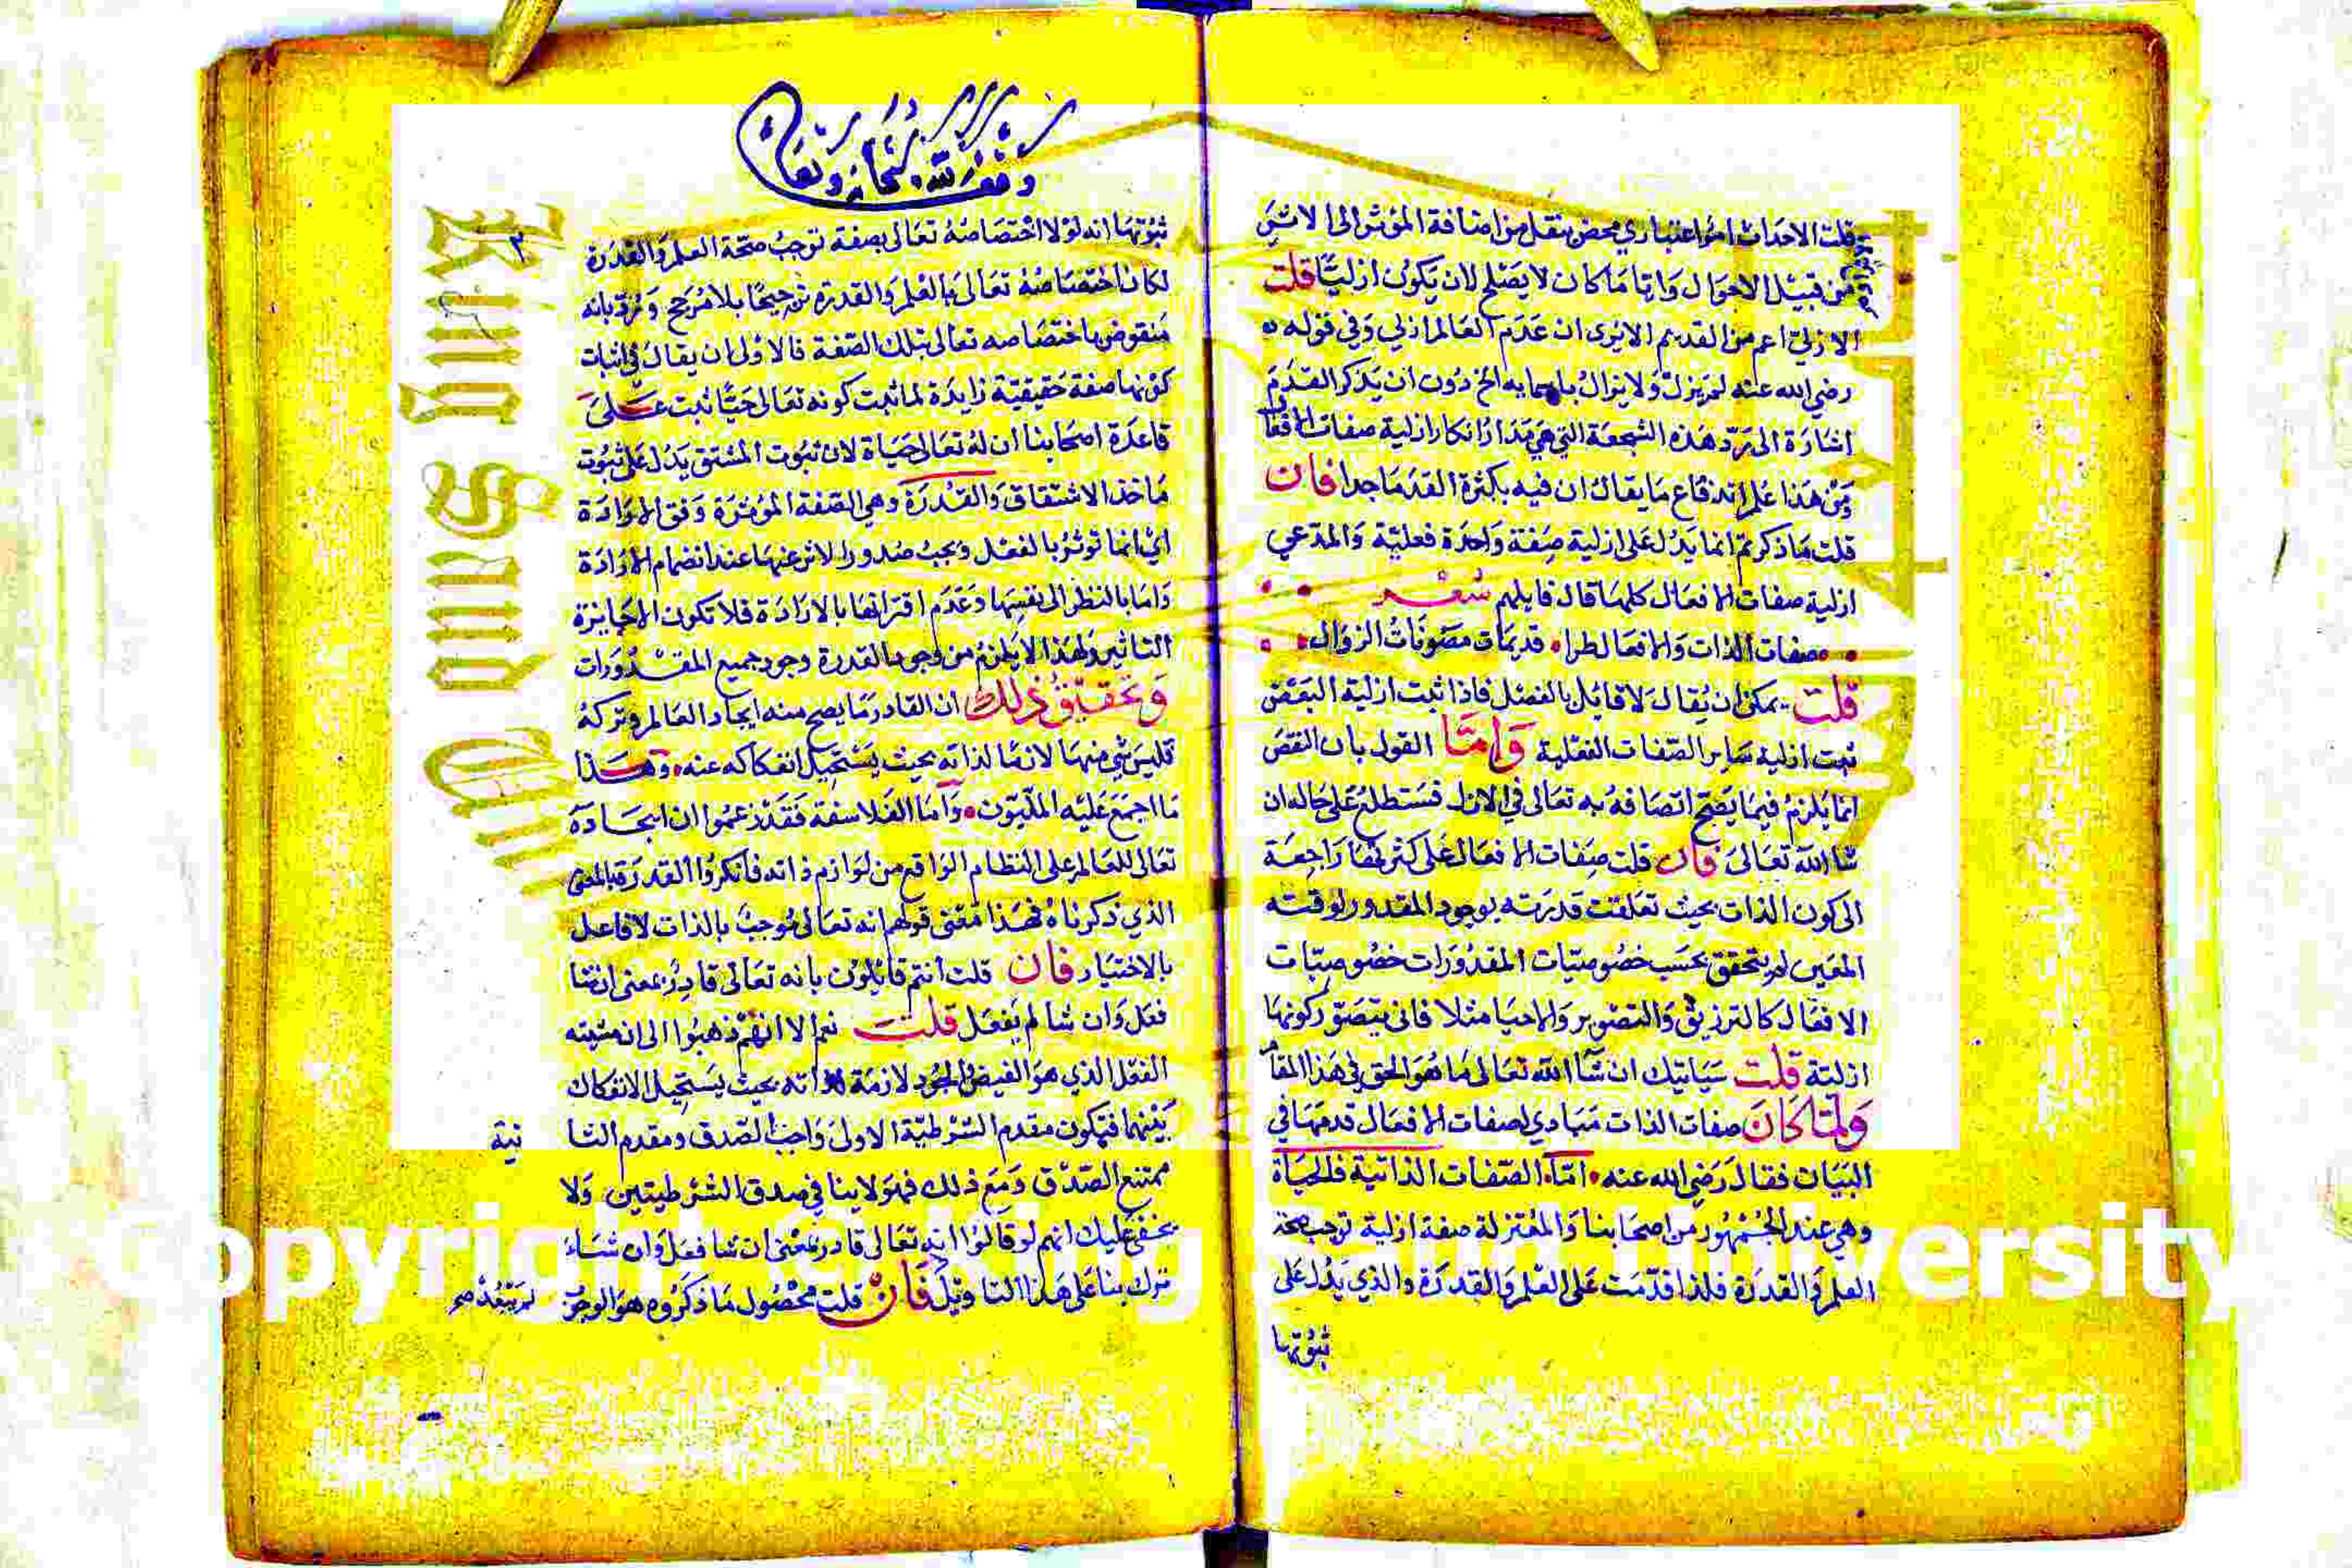 قلت الاحداث امر اعتباري محض ينتقل من اضافة المؤثر الى الاثر
من قبيل الاحوال واتا ما كان لا يصلح لان يكون ازليا قلت
الازلي اعم من القديم الا يرى ان عدم العالم ازلي وفي قوله
رضي الله عنه لم يزل ولا يزال باسمايه الخ دون ان يذكر القدم
اشارة الى رد هذه الشبهة التي هي مدار انكار ازلية صفات الافعال
ومن هذا علم اندفاع ما يقال ان فيه بكثرة القدما جدا فان
قلت ما ذكرتم انما يدل على ازلية صفة واحدة فعلية والمدعي
ازلية صفات الافعال كلها قال قايلهم شعر
صفات الذات والافعال طرا قديمات مصونات الزوال
قلت يمكن ان يقال لا قايل بالفصل فاذا ثبت ازلية البعض
ثبت ازلية ساير الصفات الفعلية واما القول بان النقض
انما يلزم فيما يصح اتصافه به تعالى في الازل فستطلع على حاله ان
شا الله تعالى فان قلت صفات الافعال على كثرتها راجعة
الى كون الذات بحيث تعلقت قدرته بوجود المقدور لوقته
المعين لم يتحقق بحسب خصوصيات المقدورات خصوصيات
الافعال كالترزيق والتصوير والاحيا مثلا فانى يتصور كونها
ازلية قلت سياتيك ان شا الله تعالى ما هو الحق في هذا المقام
ولما كان صفات الذات مبادي لصفات الافعال قدمها في
البيان فقال رضي الله عنه اما الصفات الذاتية فالحياة
وهي عند الجمهور من اصحابنا والمعتزلة صفة ازلية توجب صحة
العلم والقدرة فلذا قدمت على العلم والقدرة والذي يدل على
ثبوتها
وقف لله سبحانه وتعالى
٢
ثبوتها انه لولا اختصاصه تعالى بصفة توجب صحة العلم والقدرة
لكان اختصاصه تعالى بالعلم والقدرة ترجيحا بلا مرجح ورد بانه
منقوض باختصاصه تعالى بتلك الصفة فالاولى ان يقال في اثبات
كونها صفة حقيقية زايدة لما ثبت كونه تعالى حيا ثبت على
قاعدة اصحابنا ان له تعالى حياة لان ثبوت المشتق يدل على ثبوت
ماخذ الاشتقاق والقدرة وهي الصفة المؤثرة وفق الارادة
اي انما توثر بالفعل ويجب صدور الاثر عنها عند انضمام الارادة
واما بالنظر الى نفسها وعدم اقترانها بالارادة فلا تكون الا جايزة
التاثير ولهذا لا يلزم من وجود القدرة وجود جميع المقدورات
وتحقيق ذلك ان القادر ما يصح منه ايجاد العالم وتركه
فليس شي منها لازما لذاته بحيث يستحيل انفكاكه عنه وهذا
ما اجمع عليه المليون واما الفلاسفة فقد زعموا ان ايجاده
تعالى للعالم على النظام الواقع من لوازم ذاته فانكروا القدرة بالمعنى
الذي ذكرناه فهذا معنى قولهم انه تعالى موجب بالذات لا فاعل
بالاختيار فان قلت انتم قايلون بانه تعالى قادر بمعنى ان شا
فعل وان شا لم يفعل قلت نعم الا انهم ذهبوا الى ان مشيته
الفعل الذي هو الفيض والجود لازمة لذاته بحيث يستحيل الانفكاك
بينهما فيكون مقدم الشرطية الاولى واجب الصدق ومقدم الثا
نية
ممتنع الصدق ومع ذلك فهو لا ينافي صدق الشرطيتين ولا
يخفى عليك انهم لو قالوا انه تعالى قادر بمعنى ان شا فعل وان شاء
ترك بنا على هذا التاويل فان قلت محصول ما ذكروه هو الوجوب
لم يبعد صح
Copyright © King Saud University